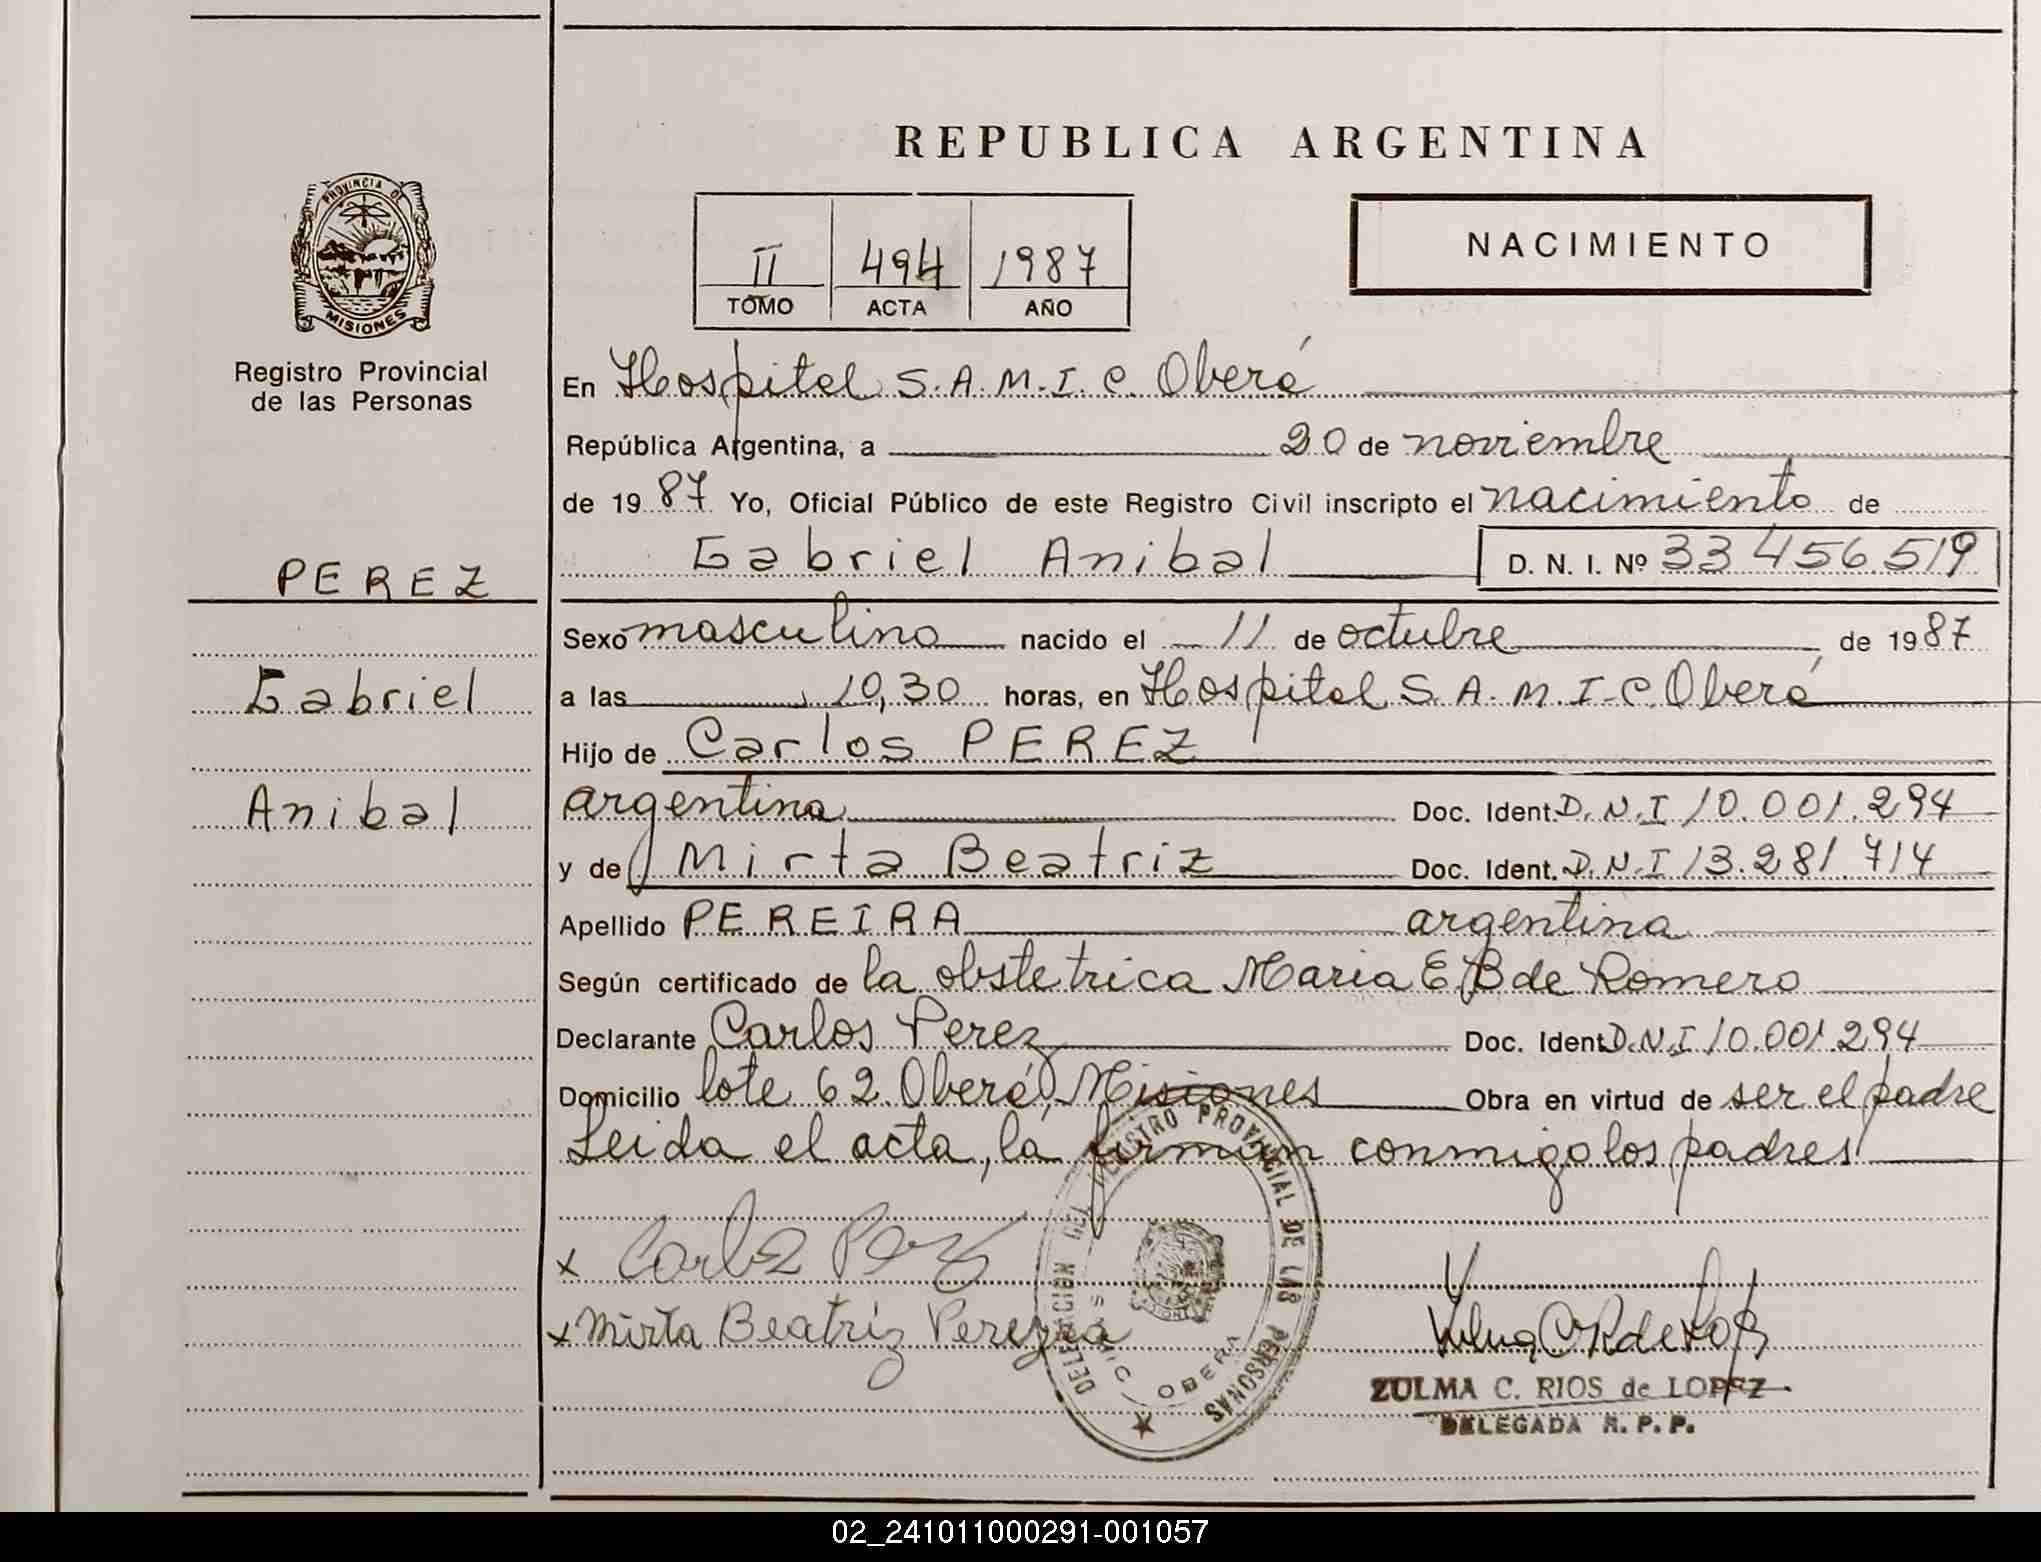 REPUBLICA ARGENTINA
PROVINCIA DE
MISIONES
Registro Provincial
de las Personas
II 494 1987
TOMO ACTA AÑO
NACIMIENTO
En Hospital S.A.M.I.C. Oberá
República Argentina, a 20 de noviembre
de 1987 Yo, Oficial Público de este Registro Civil inscripto el nacimiento de
Gabriel Anibal D. N. I. Nº 33 456 519
PEREZ
Gabriel
Anibal
Sexo masculino nacido el 11 de octubre de 1987
a las 10,30 horas, en Hospital S.A.M.I.C. Oberá
Hijo de Carlos PEREZ
argentina Doc. Ident. D.N.I 10.001.294
y de Mirta Beatriz Doc. Ident. D.N.I 13.281.714
Apellido PEREIRA argentina
Según certificado de la obstetrica Maria E. B de Romero
Declarante Carlos Perez Doc. Ident D.N.I 10.001.294
Domicilio lote 62 Oberá, Misiones Obra en virtud de ser el padre
Leida el acta, la firman conmigo los padres
x Carlos Perez
x Mirta Beatriz Pereyra
DELEGACION DEL REGISTRO PROVINCIAL DE LAS PERSONAS
OBERA
ZULMA C. RIOS de LOPEZ
DELEGADA R. P. P.
02_241011000291-001057